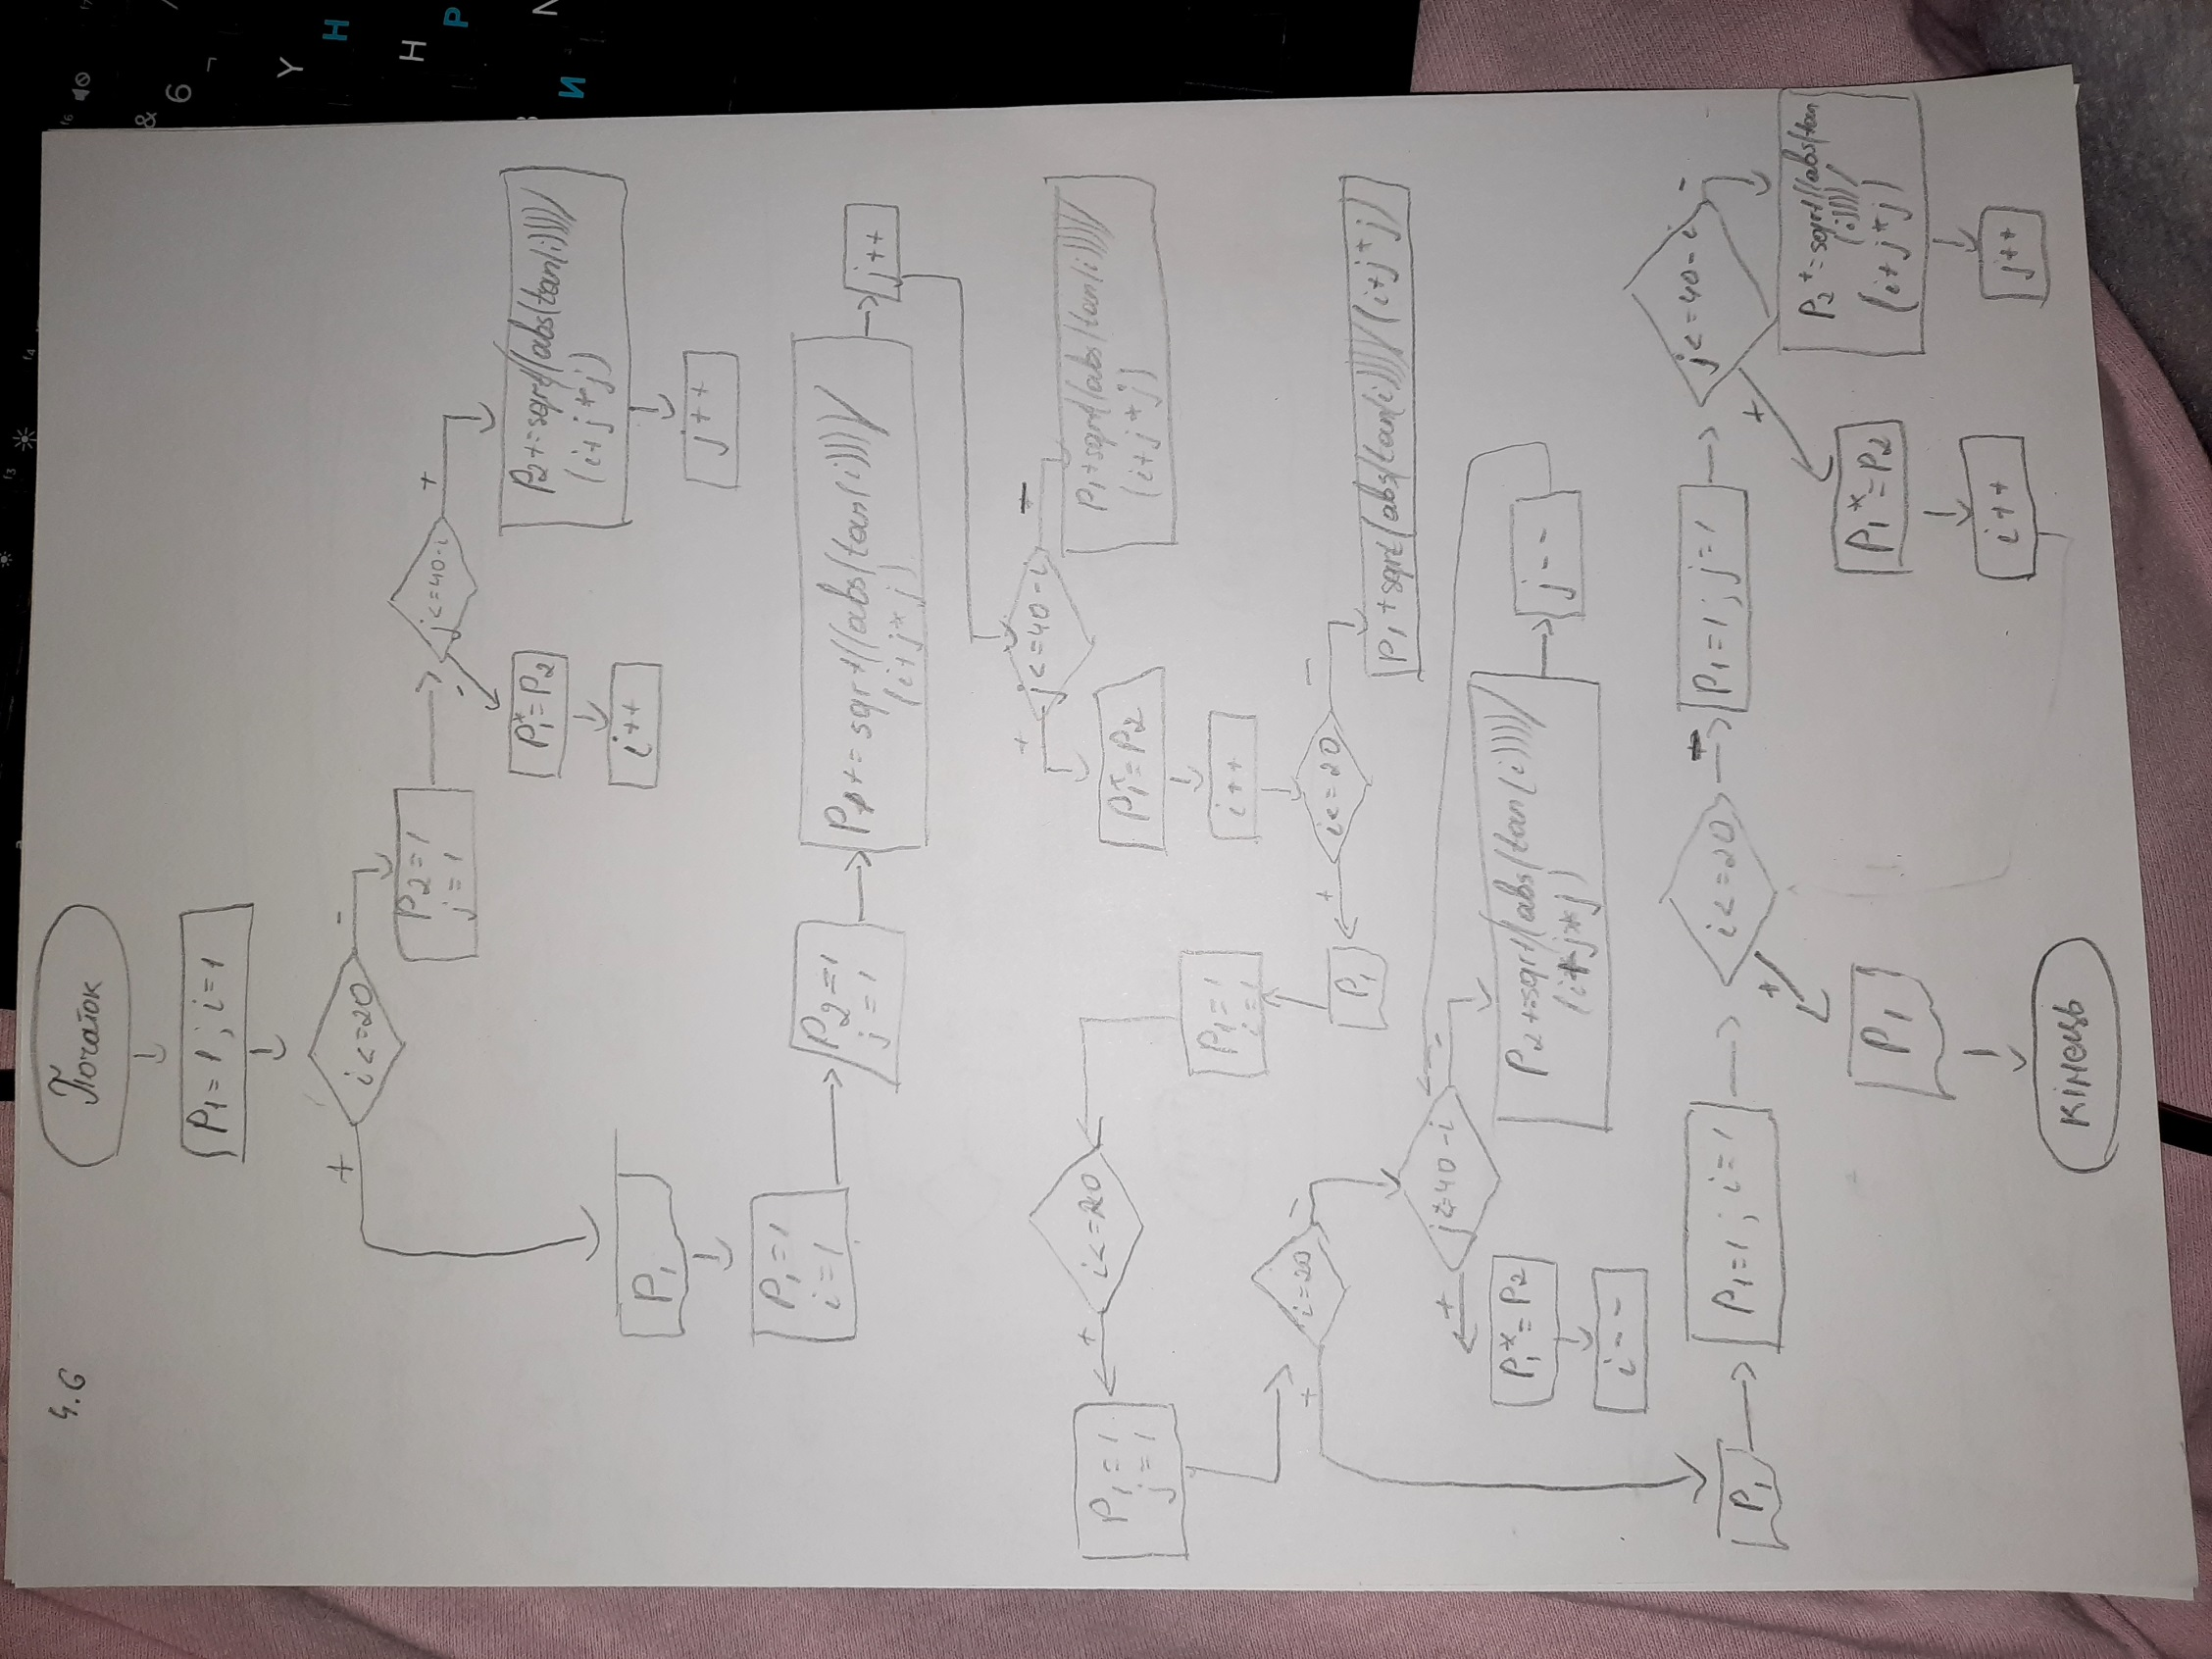 4.6
Початок
P1 = 1 ; i = 1
i <= 20
+
-
P2 = 1
j = 1
j <= 40 - i
+
-
P2 += sqrt((abs(tan(i))))/
(i + j * j)
j++
P1 *= P2
i++
P1
P1 = 1
i = 1
P2 = 1
j = 1
+= sqrt((abs(tan(i))))/
(i + j * j)
j++
j <= 40 - i
+
-
P1 + sqrt(abs(tan(i))))/
(i + j * j)
P1 *= P2
i++
i <= 20
+
-
P1 + sqrt(abs(tan(i))))/(i + j * j)
P1
P1 = 1
i = 1
i <= 20
+
P1 = 1
j = 1
i = 20
+
-
40 - i
+
-
P2 += sqrt(abs(tan(i))))/
(i + j * j)
j--
P1 *= P2
i--
P1
P1 = 1 ; i = 1
i <= 20
+
P1 = 1 ; j = 1
j <= 40 - i
+
-
P2 += sqrt((abs(tan
(i))))/
(i + j * j)
j++
P1 *= P2
i++
P1
кінець
6
&
Y
Н
H
Р
И
N
f6
f4
f3